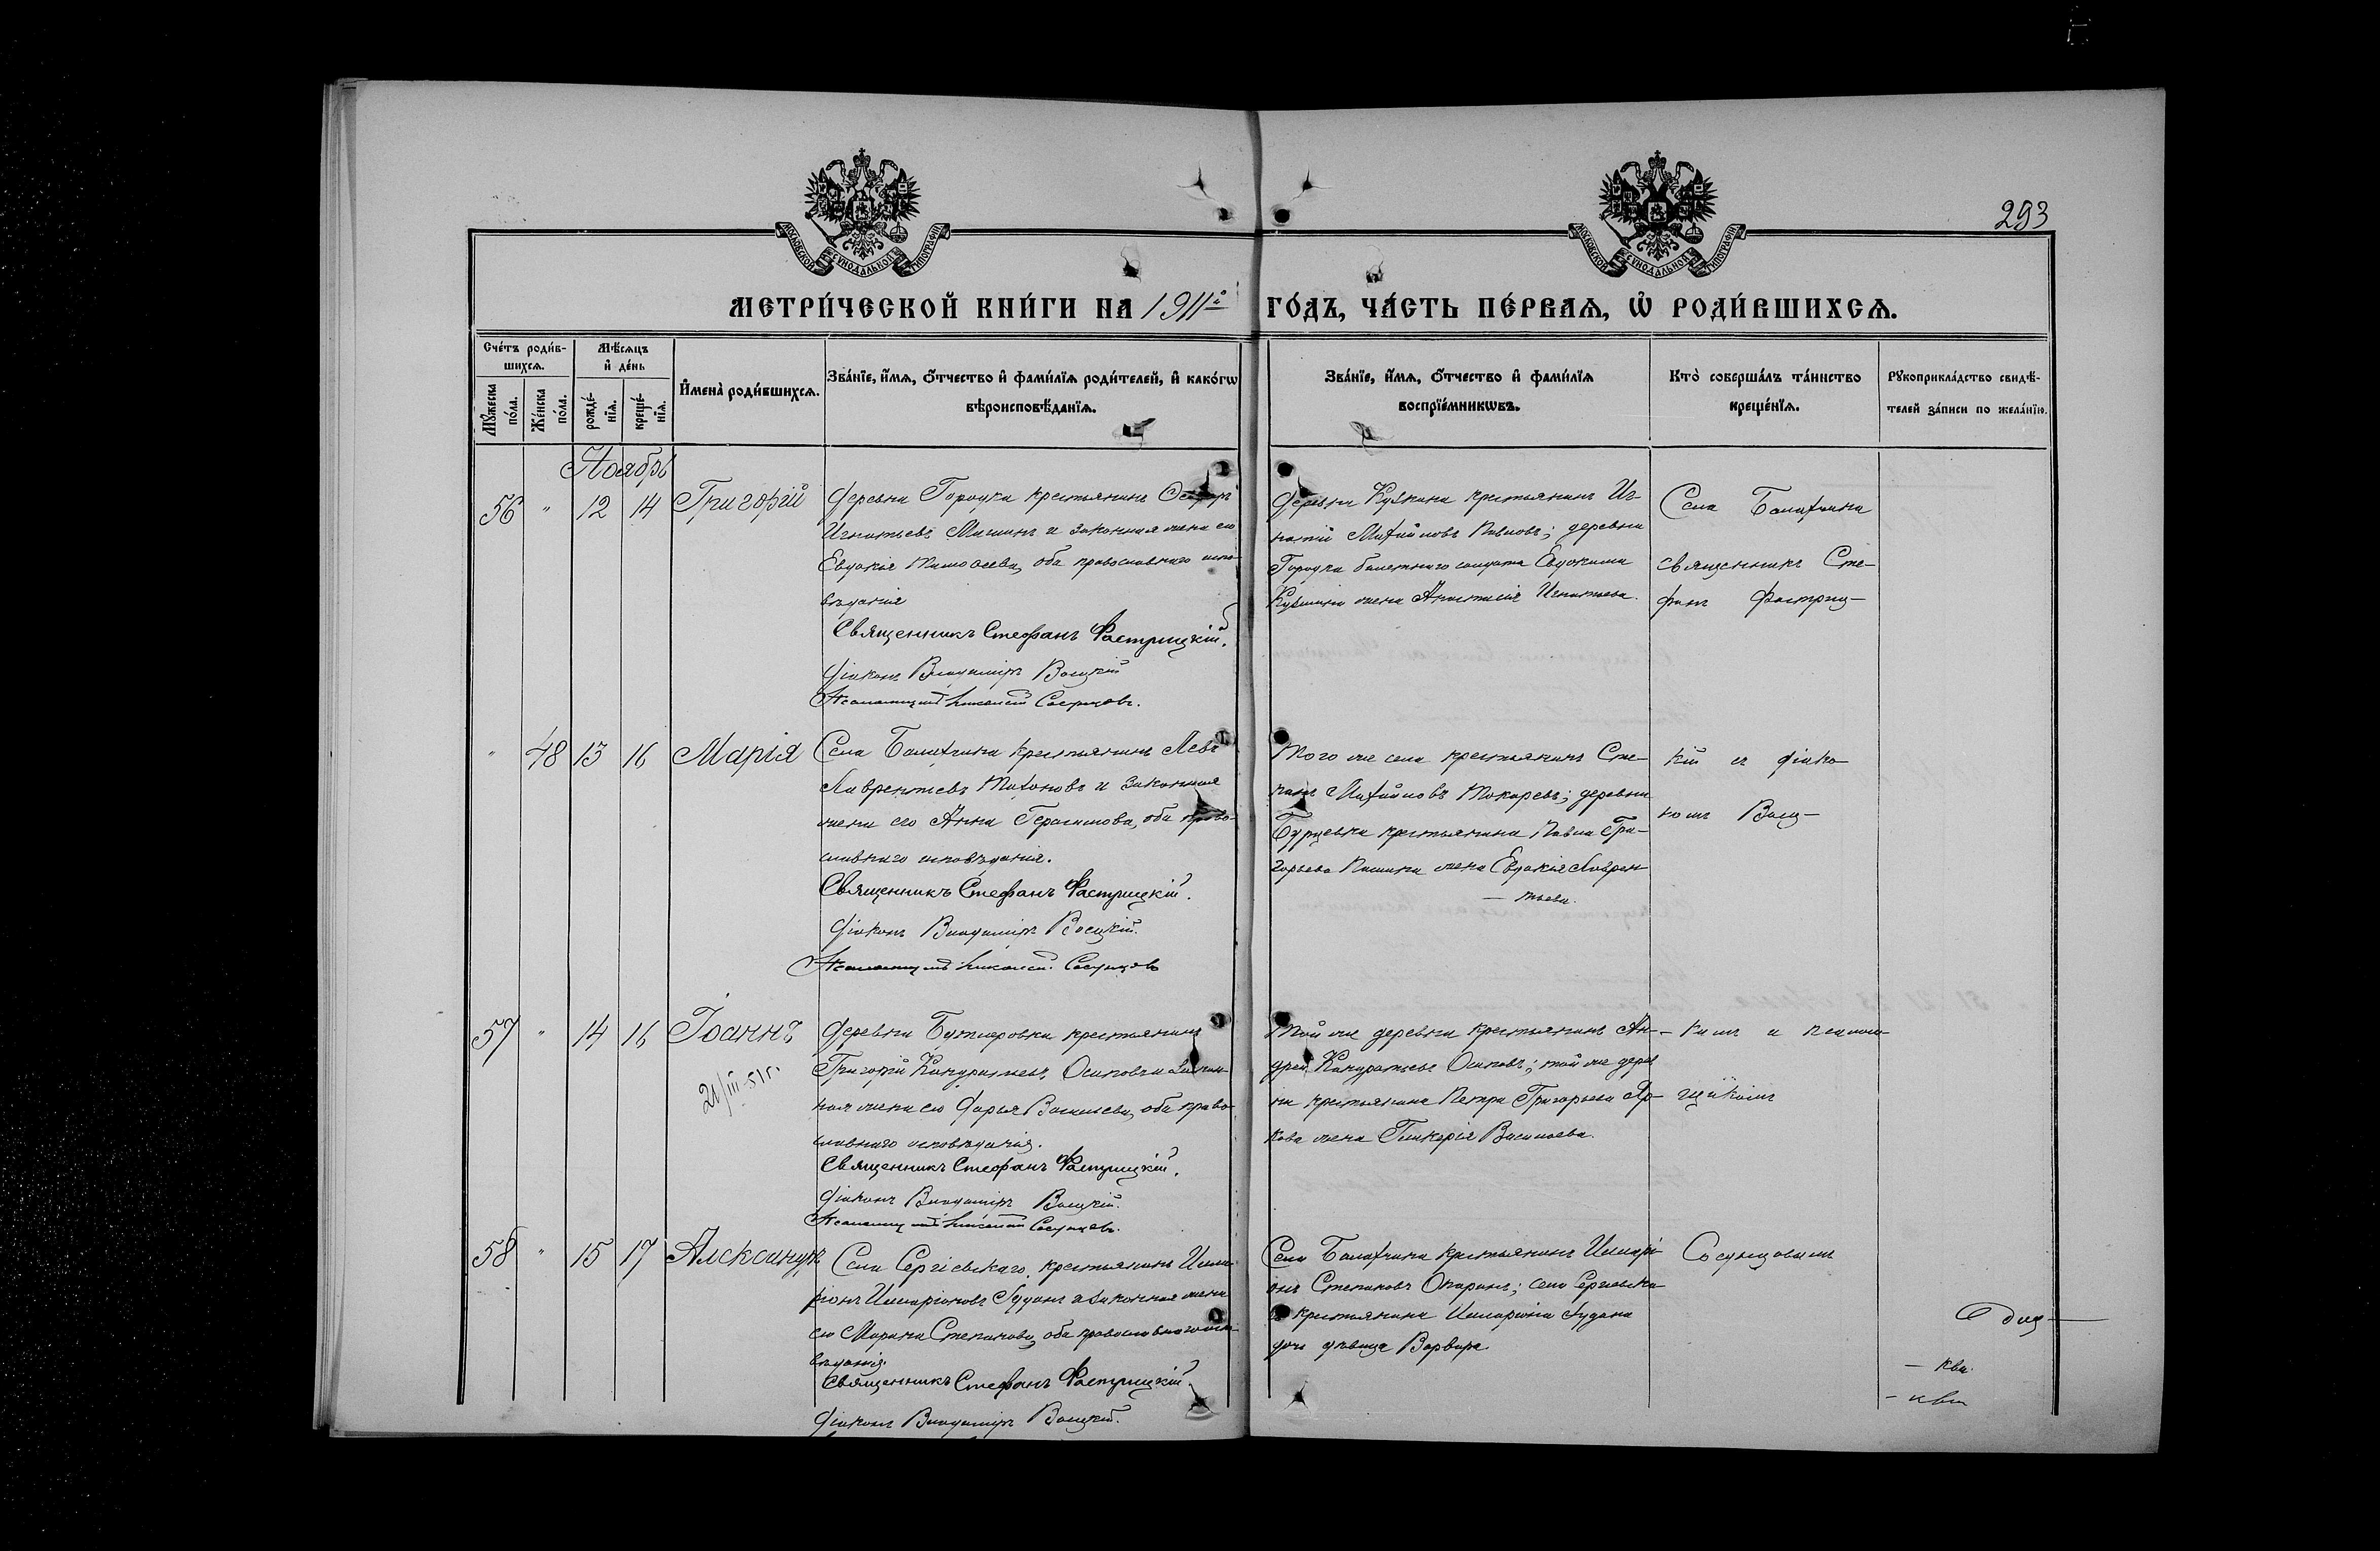 293
МОСКОВСКОЙ СѴНОДАЛЬНОЙ ТИПОГРАФІИ
МОСКОВСКОЙ СѴНОДАЛЬНОЙ ТИПОГРАФІИ
МЕТРИ́ЧЕСКОЙ КНИ́ГИ НА 1911й ГО́ДЪ, ЧА́СТЬ ПЕ́РВАѦ, Ѡ҆ РОДИ́ВШИХСѦ.
Сче́тъ роди́в-
шихсѧ.
Мѣ́сѧцъ
и҆ де́нь
Мꙋ́жеска по́ла.
Же́нска по́ла.
рожде́-нїѧ.
креще́-нїѧ.
И҆мена̀ роди́вшихсѧ.
Зва́нїе, и҆́мѧ, ѻ҆́тчество и҆ фами́лїѧ роди́телей, и҆ како́гѡ
вѣроисповѣ́данїѧ.
Зва́нїе, и҆́мѧ, ѻ҆́тчество и҆ фами́лїѧ
воспрїе́мникѡвъ.
Кто̀ соверша́лъ та́инство
креще́нїѧ.
Рꙋкоприкла́дство свидѣ́-
телей за́писи по жела́нїю.
Ноябрь
56 " 12 14 Григорій
Деревни Городка крестьянинъ
Игнатьевъ Мишинъ и законная жена его
Евдокія Тимоѳеева, оба православнаго испо-
вѣданія
Священникъ Стефанъ Растрицкій.
Діаконъ Владиміръ
Псаломщикъ Николай Сосунцовъ.
Деревни крестьянинъ Иг-
натій Михайловъ Павловъ; деревни
Городка билетнаго солдата Евдокима
жена Анастасія Игнатьева.
Села Балахчина
священникъ Сте-
фанъ Растриц-
" 48 13 16 Марія
Села Балахчина крестьянинъ Левъ
Лаврентьевъ Тихоновъ и законная
жена его Анна Герасимова, оба право-
славнаго исповѣданія.
Священникъ Стефанъ Растрицкій.
Діаконъ Владиміръ
Псаломщикъ Николай Сосунцовъ
Того же села крестьянинъ Сте-
панъ Михайловъ Токаревъ; деревни
Бурцевки крестьянина Павла Гри-
горьева жена Евдокія Лаврен-
— тьева.
кій съ діако-
номъ
57 " 14 16 Іоаннъ
21/III-51г.
Деревни Бутлеровки крестьянинъ
Григорій Кондратьевъ Осиповъ и закон-
ная жена его Дарья Васильева, оба право-
славнаго исповѣданія.
Священникъ Стефанъ Растрицкій.
Діаконъ Владиміръ
Псаломщикъ Николай Сосунцовъ.
Той же деревни крестьянинъ Ан-
дрей Кондратьевъ Осиповъ; той же дерев
ни крестьянина Петра Григорьева Яр-
кова жена Гликерія Васильева.
- кимъ и псалом-
щикомъ
58 " 15 17 Александръ
Села Сергіевскаго, крестьянинъ Илла-
ріонъ Илларіоновъ и законная жена
его Марина Степанова, оба православнаго испо-
вѣданія.
Священникъ Стефанъ Растрицкій.
Діаконъ Владиміръ
Села Балахчина крестьянинъ Иларі-
онъ Степановъ Опаринъ; села Сергіевска-
го крестьянина Иларіона
дочь дѣвица Варвара.
Сосунцовымъ